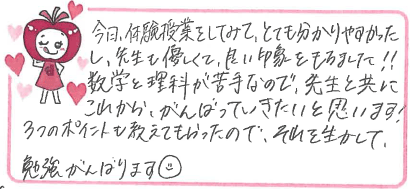 今日、体験授業をしてみて、とても分かりやすかった
し、先生も優しくて、良い印象をもちました!!
数学と理科が苦手なので、先生と共に
これから、がんばっていきたいと思います!
3つのポイントも教えてもらったので、それを生かして、
勉強がんばります☺